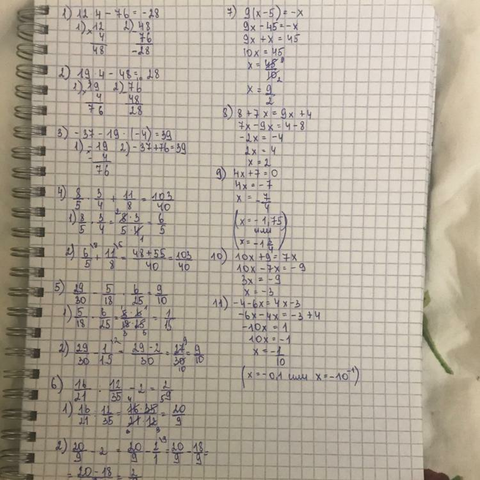 1) 12·4 - 76 = -28
1) × 12 2) - 48
4 76
48 -28
2) 19·4 - 48 = 28
1) × 19 2) 76
4 48
76 28
3) -37 - 19·(-4) = 39
1) -19 2) -37 + 76 = 39
-4
76
4) 8/5 · 3/4 + 11/8 = 103/40
1) 8/5 · 3/4 = 8·3/5·4 = 6/5
2) 6/5 + 11/8 = 48+55/40 = 103/40
5) 29/30 - 5/18 · 6/25 = 9/10
1) 5/18 · 6/25 = 5·6/18·25 = 1/15
2) 29/30 - 1/15 = 29-2/30 = 27/30 = 9/10
6) 16/21 : 12/35 - 2 = 2/9
1) 16/21 : 12/35 = 16·35/21·12 = 20/9
2) 20/9 - 2 = 20/9 - 2/1 = 20/9 - 18/9 =
= 20-18/9 = 2/9
7) 9(x-5) = -x
9x - 45 = -x
9x + x = 45
10x = 45
x = 45/10
x = 9/2
8) 8 + 7x = 9x + 4
7x - 9x = 4 - 8
-2x = -4
2x = 4
x = 2
9) 4x + 7 = 0
4x = -7
x = -7/4
(x = -1,75
или
10) 10x + 9 = 7x
10x - 7x = -9
3x = -9
x = -3
11) -4 - 6x = 4x - 3
-6x - 4x = -3 + 4
-10x = 1
10x = -1
x = -1/10
(x = -0,1 или x = -10⁻¹)